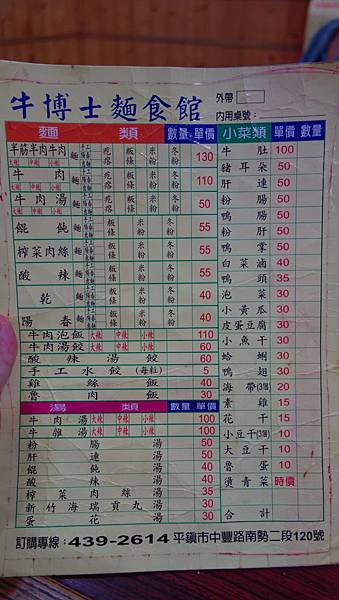 牛博士麵食館
外帶
內用桌號：
麵 類 數量 單價
半筋半肉牛肉 大辣 中辣 小辣 麵 疙瘩 粄條 米粉 冬粉 130
牛肉 大辣 中辣 小辣 麵 疙瘩 粄條 米粉 冬粉 110
牛肉湯 大辣 中辣 小辣 麵 疙瘩 粄條 米粉 冬粉 50
餛飩 麵 粄條 米粉 冬粉 55
榨菜肉絲 麵 粄條 米粉 冬粉 55
酸辣 麵 粄條 米粉 冬粉 55
乾 麵 粄條 米粉 冬粉 40
陽春 麵 粄條 米粉 冬粉 40
牛肉泡飯 大辣 中辣 小辣 110
牛肉湯餃 大辣 中辣 小辣 60
酸辣湯餃 60
手工水餃 (每粒) 5
雞絲飯 40
魯肉飯 30
湯 類 數量 單價
牛肉湯 大辣 中辣 小辣 100
牛雜湯 大辣 中辣 小辣 100
粉腸湯 50
肝連湯 50
餛飩湯 40
酸辣湯 40
榨菜肉絲湯 35
新竹海瑞貢丸湯 30
蛋花湯 30
小菜類 單價 數量
牛肚 100
豬耳朵 50
肝連 50
粉腸 50
鴨腸 50
粉肝 50
鴨掌 50
白菜滷 40
鴨頭 35
泡菜 30
小黃瓜 30
皮蛋豆腐 30
小魚干 30
蛤蜊 30
鴨翅 30
海帶(3個) 20
素雞 15
花干 15
小豆干(3個) 10
大豆干 10
魯蛋 10
燙青菜 時價
合計
訂購專線：439-2614 平鎮市中豐路南勢二段120號